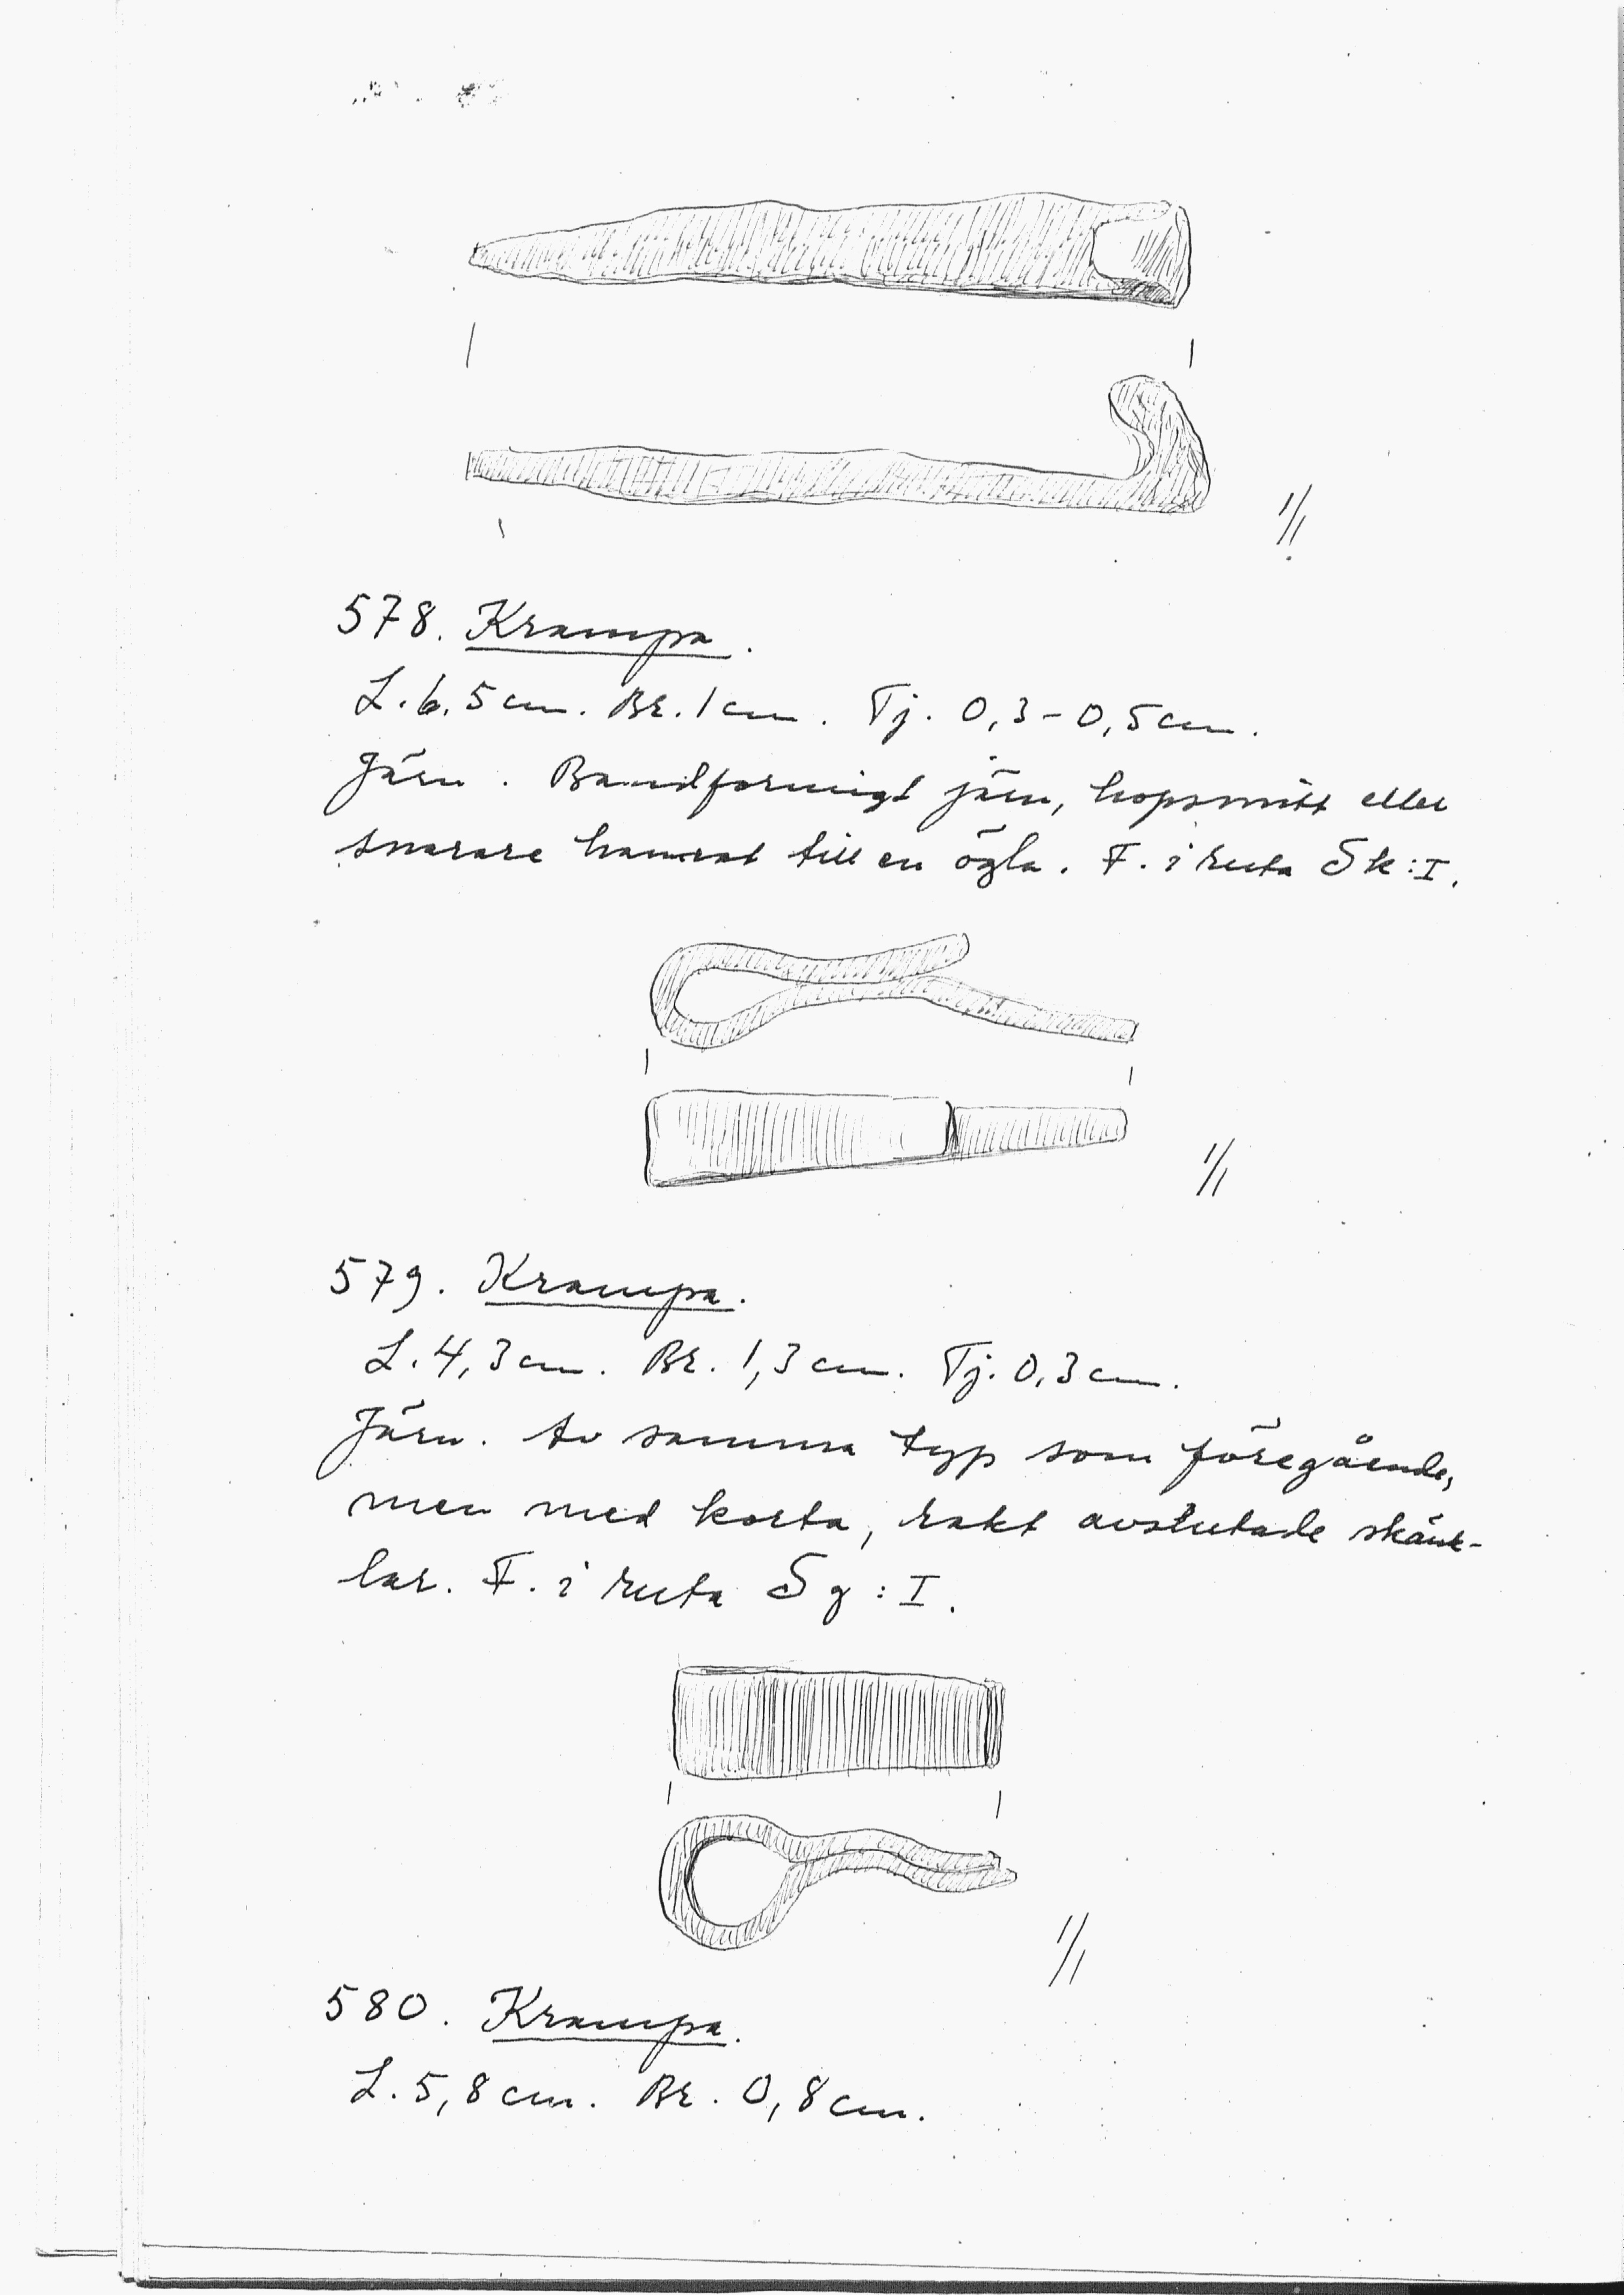 1/1
578. Krampa.
L. 6,5 cm. Br. 1 cm. Tj. 0,3-0,5 cm.
Järn. Bandformigt järn, hopsmitt eller
snarare hamrat till en ögla. F. i ruta Sk:I.
1/1
579. Krampa.
L. 4,3 cm. Br. 1,3 cm. Tj. 0,3 cm.
Järn. Av samma typ som föregående,
men med korta, rakt avslutade skänk-
lar. F. i ruta Sg:I.
1/1
580. Krampa.
L. 5,8 cm. Br. 0,8 cm.